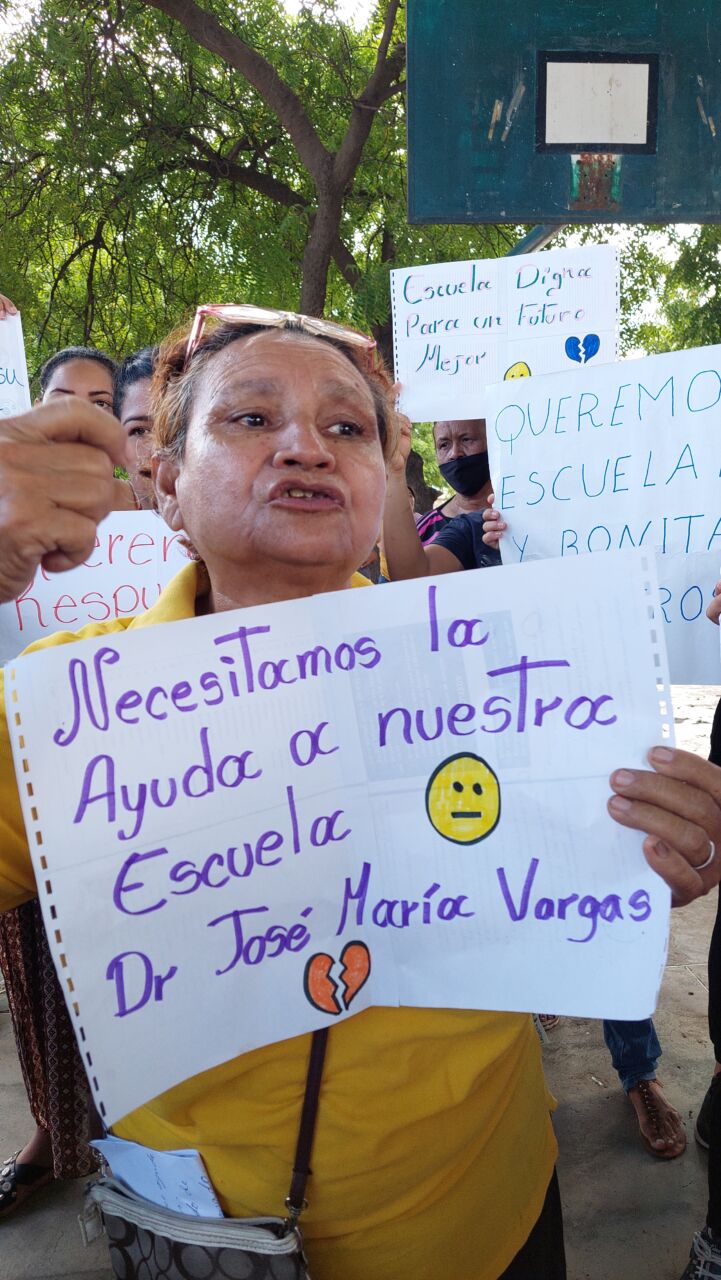 Escuela Digna
Para un Futuro
Mejor
QUEREMO
ESCUELA
Y BONITA
Necesitamos la
Ayuda a nuestra
Escuela
Dr José María Vargas